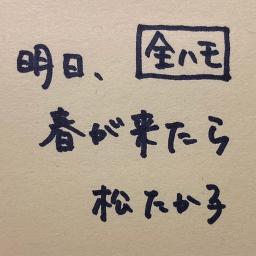 明日、 全ハモ
春が来たら
松たか子